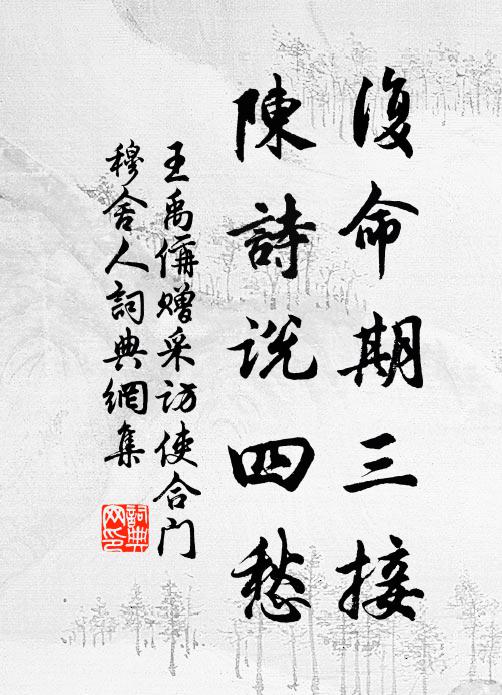 復命期三接
陳詩說四愁
王禹偁赠采访使合门
穆舍人詞典網集
詞典网印